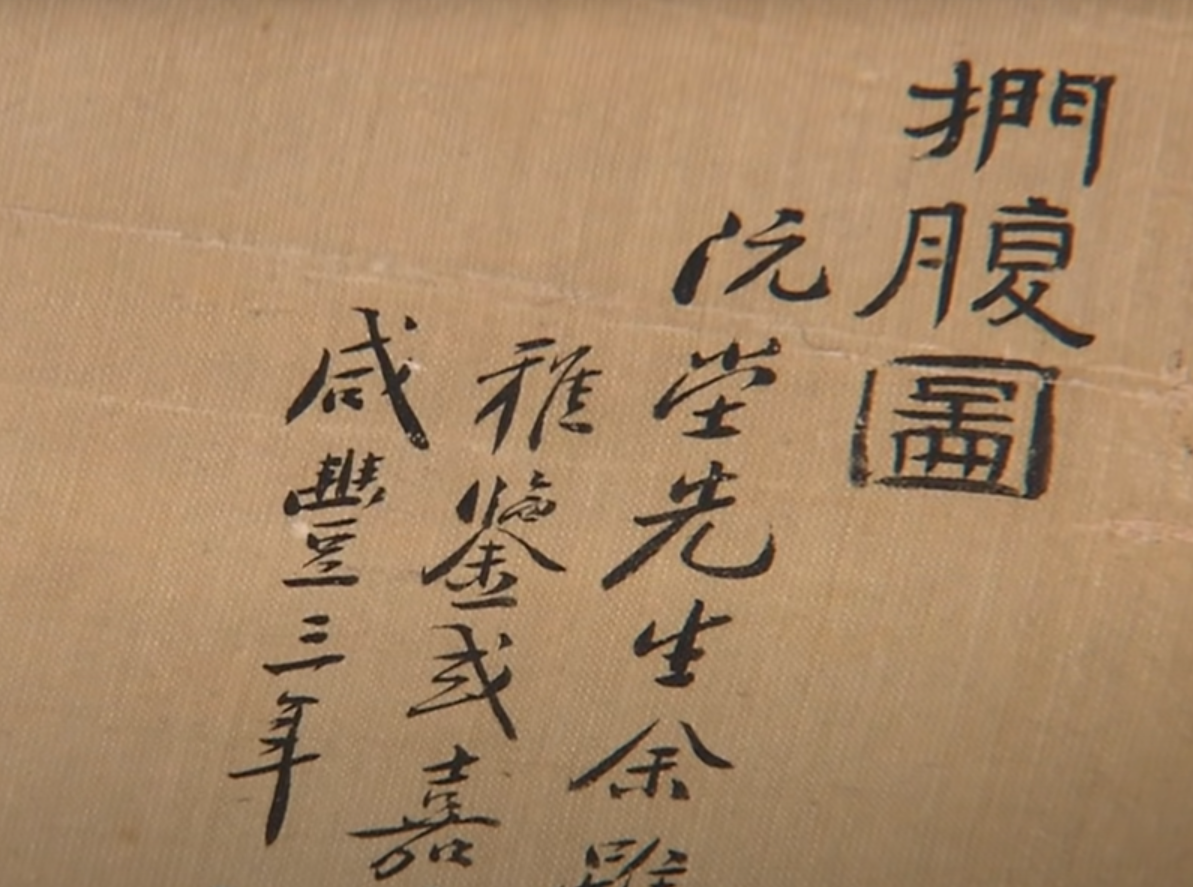 捫腹圖
沅堂先生余
雅鑒或嘉
咸豐三年